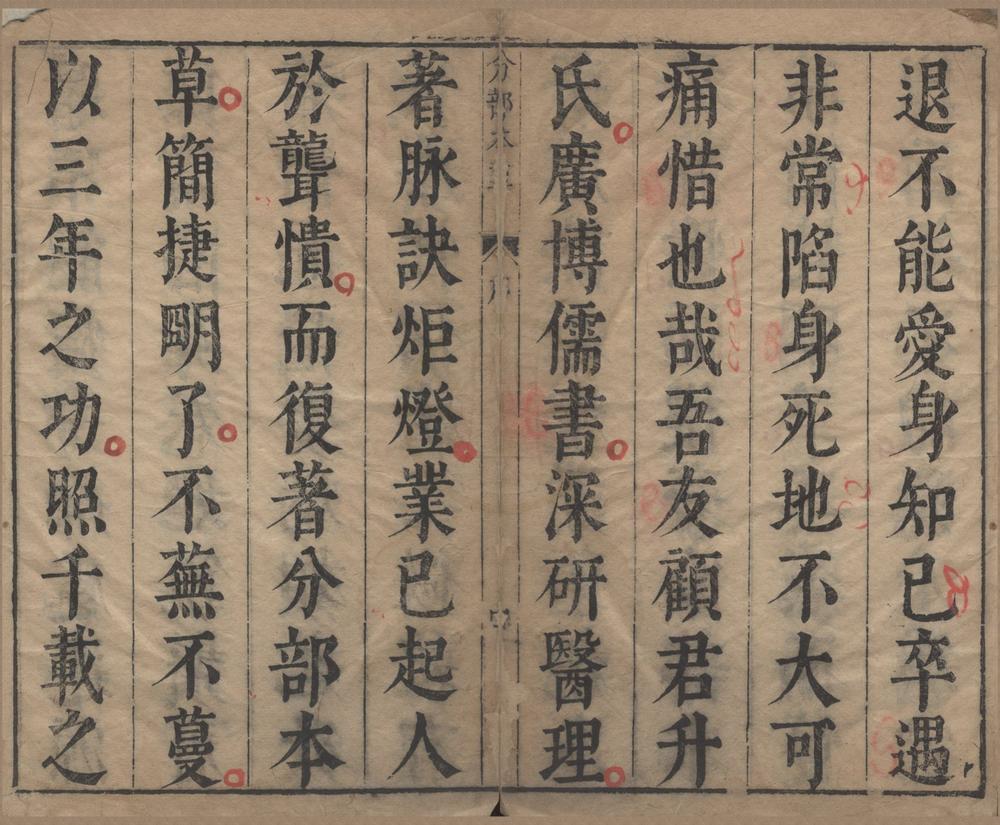 退不能愛身知己卒遇
非常陷身死地不大可
痛惜也哉吾友顧君升
氏廣博儒書深研醫理
分部本草
序
四
著脉訣炬燈業已起人
於聾憒而復著分部本
草簡捷明了不蕪不蔓
以三年之功照千載之